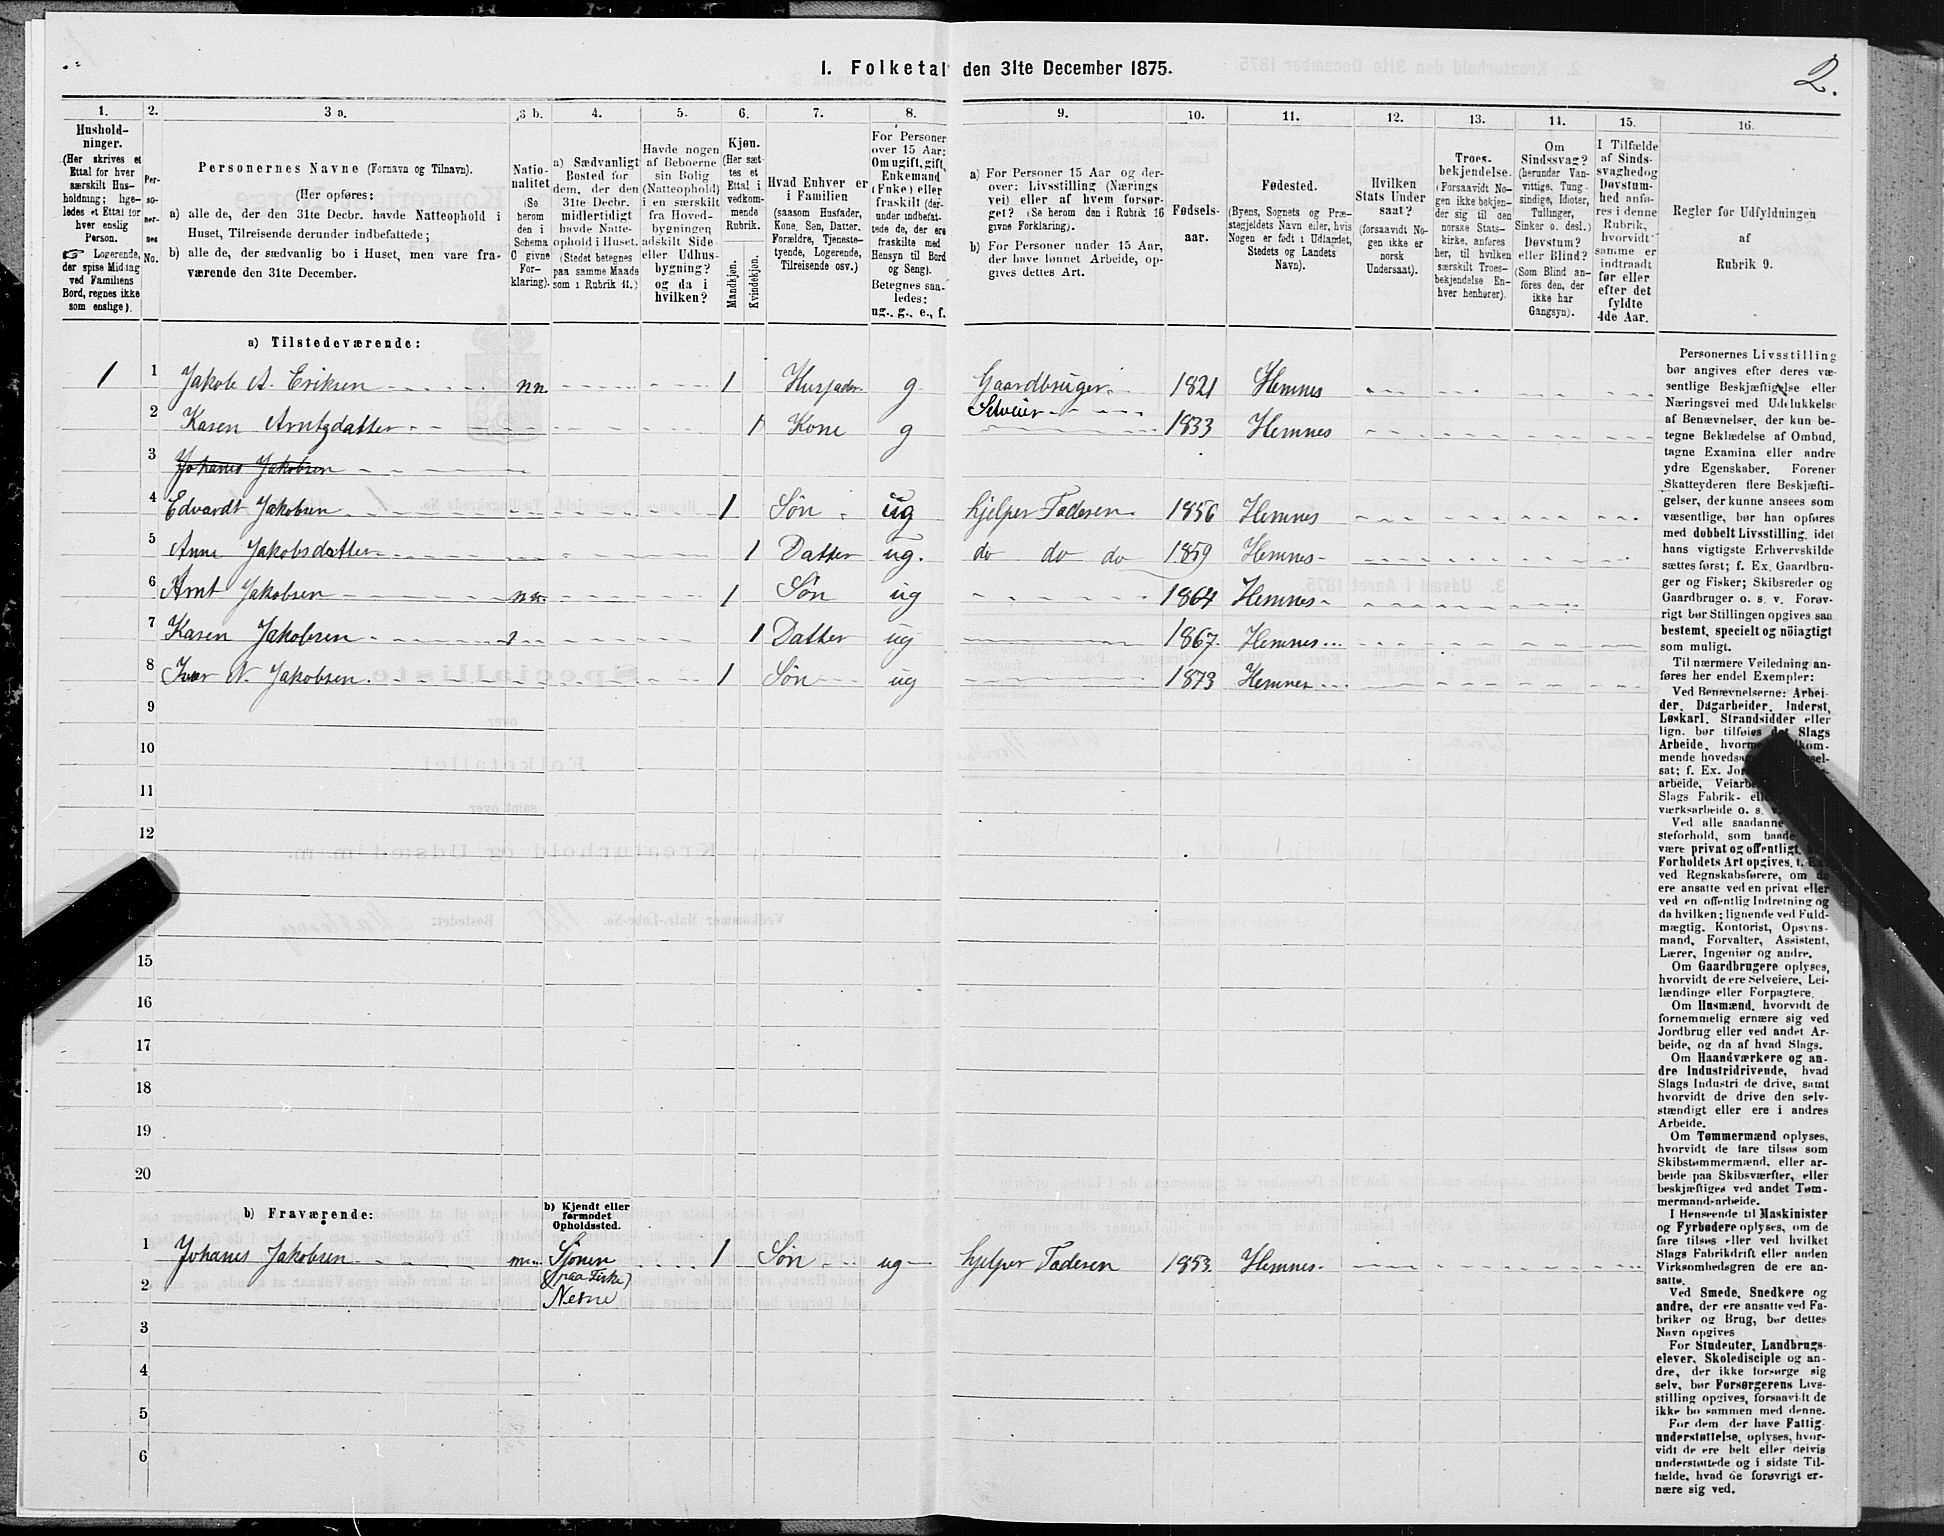 2.
1. Folketal den 31te December 1875.
1.
Hushold-
ninger.
(Her skrives et
Ettal for hver
særskilt Hus-
holdning; lige-
ledes et Ettal for
hver enslig
Person.
☞ Logerende,
der spise Middag
ved Familiens
Bord, regnes ikke
som enslige).
2.
Per-
so-
ner-
nes
No.
3 a.
Personernes Navne (Fornavn og Tilnavn).
(Her opføres:
a) alle de, der den 31te Decbr. havde Natteophold i
Huset, Tilreisende derunder indbefattede;
b) alle de, der sædvanlig bo i Huset, men vare fra-
værende den 31te December.
3 b.
Natio-
nalitet
(Se
herom
den i
Schema
C givne
For-
klaring).
4.
a) Sædvanligt
Bosted for
dem, der den
31te Decbr.
midlertidigt
havde Natte-
ophold i Huset.
(Stedet betegnes
paa samme Maade
som i Rubrik 11.)
5.
Havde nogen
af Beboerne
sin Bolig
(Natteophold)
i en særskilt
fra Hoved-
bygningen
adskilt Side-
eller Udhus-
bygning?
og da i
hvilken?
6.
Kjøn.
(Her sæt-
tes et
Ettal i
vedkom-
mende
Rubrik.
Mandkjøn.
Kvindekjøn.
7.
Hvad Enhver er
i Familien
(saasom Husfader,
Kone, Søn, Datter,
Forældre, Tjeneste-
tyende, Logerende,
Tilreisende osv.)
8.
For Personer
over 15 Aar:
Om ugift, gift,
Enkemand
(Enke) eller
fraskilt (der-
under indbefat-
tede de, der ere
fraskilte med
Hensyn til Bord
og Seng).
Betegnes saa-
ledes:
ug., g., e., f.
9.
a) For Personer 15 Aar og der-
over: Livsstilling (Nærings
vei) eller af hvem forsør-
get? (Se herom den i Rubrik 16
givne Forklaring).
b) For Personer under 15 Aar,
der have lønnet Arbeide, op-
gives dettes Art.
10.
Fødsels-
aar.
11.
Fødested.
(Byens, Sognets og Præ-
stegjeldets Navn eller, hvis
Nogen er født i Udlandet,
Stedets og Landets
Navn).
12.
Hvilken
Stats Under
saat?
(forsaavidt No-
gen ikke er
norsk
Undersaat).
13.
Troes-
bekjendelse.
(Forsaavidt No-
gen ikke bekjen-
der sig til den
norske Stats-
kirke, anføres
her, til hvilken
særskilt Troes-
bekjendelse En-
hver henhører).
14.
Om
Sindssvag?
(herunder Van-
vittige, Tung-
sindige, Idioter,
Tullinger,
Sinker o. desl.)
Døvstum?
eller Blind?
(Som Blind an-
føres den, der
ikke har
Gangsyn).
15.
I Tilfælde
af Sinds-
svaghed og
Døvstum-
hed anfø-
res i denne
Rubrik,
hvorvidt
samme er
indtraadt
før eller
efter det
fyldte
4de Aar.
16.
Regler for Udfyldningen
af
Rubrik 9.
a) Tilstedeværende:
1 1 Jakob A. Eriksen nn. 1 Husfader g Gaardbruger Selveier 1821 Hemnes
2 Karen Arntzdatter 1 Kone g 1833 Hemnes
3 Johanes Jakobsen
4 Edvardt Jakobsen 1 Søn ug hjelper Faderen 1856 Hemnes
5 Anne Jakobsdatter 1 Datter ug. do do do 1859 Hemnes
6 Arnt Jakobsen nn. 1 Søn ug 1864 Hemnes
7 Karen Jakobsen 1 Datter ug 1867. Hemnes
8 Ivar N. Jakobsen 1 Søn ug 1873 Hemnes
9
10
11
12
15
16
17
18
19
20
b) Fraværende:
b) Kjendt eller
formodet
Opholdssted.
1 Johanes Jakobsen Sjonen 1 Søn ug hjelper Faderen 1853. Hemnes
(paa Fiske)
2 Nesne
3
4
5
6
Personernes Livsstilling
bør angives efter deres væ-
sentlige Beskjæftigelse eller
Næringsvei med Udelukkelse
af Benævnelser, der kun be-
tegne Beklædelse af Ombud,
tagne Examina eller andre
ydre Egenskaber. Forener
Skatteyderen flere Beskjæfti-
gelser, der kunne ansees som
væsentlige, bør han opføres
med dobbelt Livsstilling, idet
hans vigtigste Erhvervskilde
sættes først; f. Ex. Gaardbru-
ger og Fisker; Skibsreder og
Gaardbruger o. s. v. Forøv-
rigt bør Stillingen opgives saa
bestemt, specielt og nöiagtigt
som muligt.
Til nærmere Veiledning an-
føres her endel Exempler:
Ved Benævnelserne: Arbei-
der, Dagarbeider, Inderst,
Løskarl, Strandsidder eller
lign. bør tilføies det Slags
Arbeide, hvormed
mende hovedsa
sat; f. Ex. Jor
arbeide, Veiarb
Slags Fabrik-
værksarbeide o. s.
Ved alle saadanne
steforhold, som baade
være privat og offentligt,
Forholdets Art opgives, f. Ex.
ved Regnskabsførere, om de
ere ansatte ved en privat eller
ved en offentlig Indretning og
da hvilken; lignende ved Fuld-
mægtig, Kontorist, Opsyns-
mand, Forvalter, Assistent,
Lærer, Ingeniør og andre.
Om Gaardbrugere oplyses,
hvorvidt de ere Selveiere, Lei-
lændinge eller Forpagtere.
Om Husmænd, hvorvidt de
fornemmelig ernære sig ved
Jordbrug eller ved andet Ar-
beide, og da af hvad Slags.
Om Haandværkere og an-
dre Industridrivende, hvad
Slags Industri de drive, samt
hvorvidt de drive den selv-
stændigt eller ere i andres
Arbeide.
Om Tømmermænd oplyses,
hvorvidt de fare tilsøs som
Skibstømmermænd, eller ar-
beide paa Skibsværfter, eller
beskjæftiges ved andet Tøm-
mermandsarbeide.
I Henseende til Maskinister
og Fyrbødere oplyses, om de
fare tilsøs eller ved hvilket
Slags Fabrikdrift eller anden
Virksomhedsgren de ere an-
satte.
Ved Smede, Snedkere og
andre, der ere ansatte ved Fa-
briker og Brug, bør dettes
Navn opgives
For Studenter, Landbrugs-
elever, Skoledisciple og an-
dre, der ikke forsørge sig
selv, bør Forsørgerens Livs-
stilling opgives, forsaavidt de
ikke bo sammen med denne.
For dem der have Fattig-
understøttelse, oplyses, hvor-
vidt de ere helt eller delvis
understøttede og i sidste Til-
fælde, hvad de forøvrigt er-
nære sig ved.